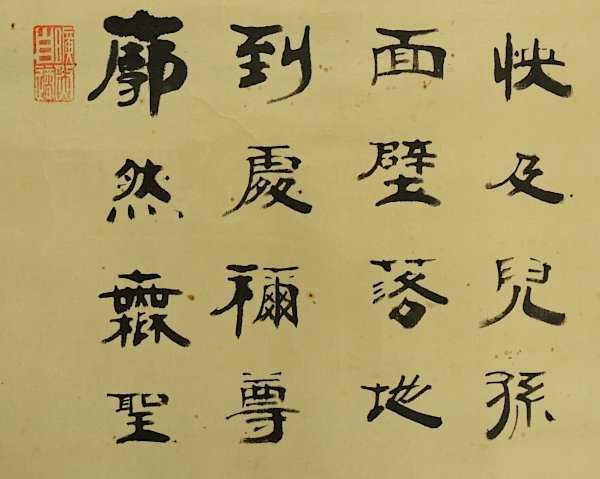 廓然無聖
到處穪尊
面壁落地
怏及兒孫